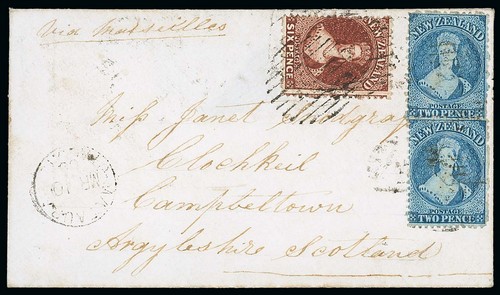 via Marseilles
SIX PENCE
NEW ZEALAND
POSTAGE
NEW ZEALAND
POSTAGE
TWO PENCE
NEW ZEALAND
POSTAGE
TWO PENCE
Miss Janet
Clochkeil
Campbeltown
Argyleshire Scotland